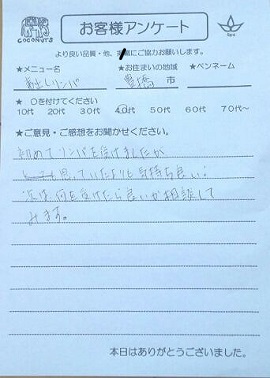 COCONUTS
お客様アンケート
Spa
より良い品質・他、ご協力お願いします。
★メニュー名 ★お住まいの地域 ★ペンネーム
リンパ 豊橋 市
★ ○を付けてください
10代 20代 30代 40代 50代 60代 70代~
★ご意見・ご感想をお聞かせください。
初めてリンパを受けましたが
思っていたよりも気持ち良い!
次は、何を受けたら良いか相談して
みます。
本日はありがとうございました。